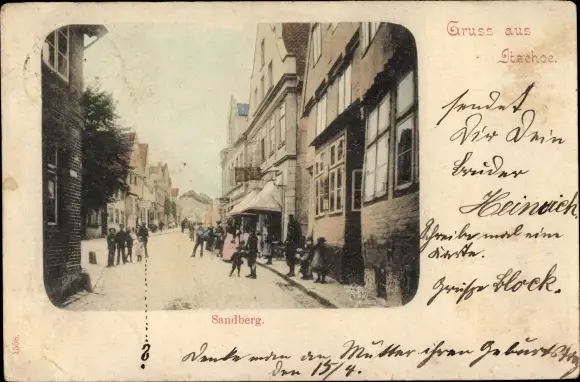 Gruss aus
Itzehoe.
sendet
Dir Dein
Bruder
Heinrich.
Schreibe mal eine
Karte.
Grüße Block.
Sandberg.
?
Denke man an Mutter ihren Geburtstag
den 15/4.